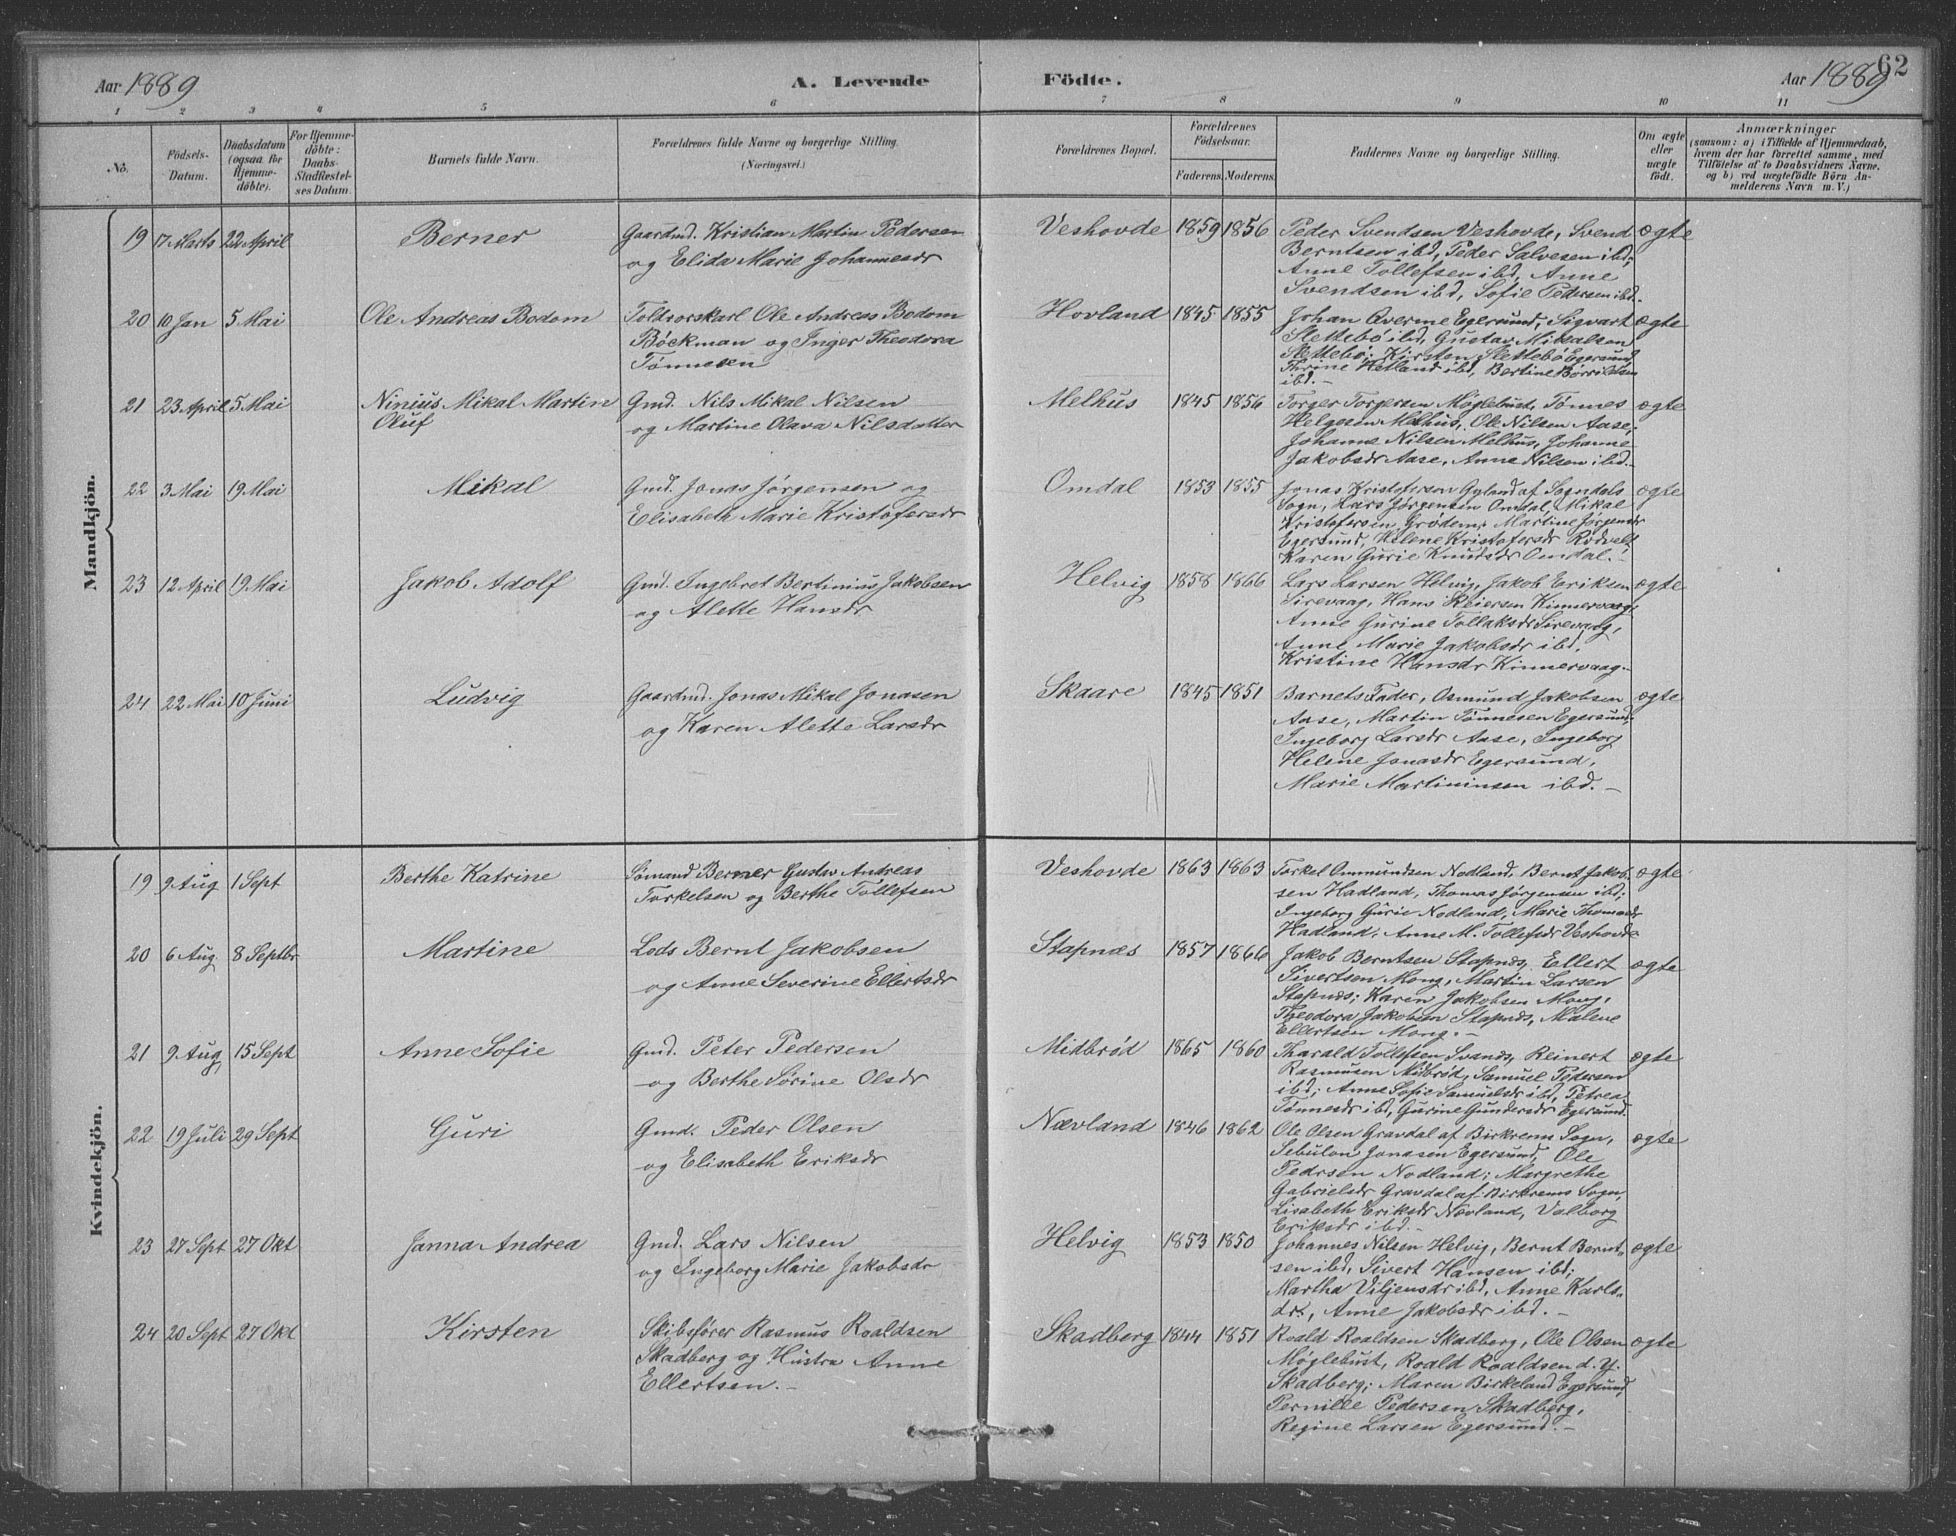 62
Aar 1889 A. Levende Födte. Aar 1889
1 2 3 4 5 6 7 8 9 10 11
No. Födsels-Datum. Daabsdatum (ogsaa for Hjemme-döbte). For Hjemme-döbte: Daabs-Stadfæstel-ses Datum. Barnets fulde Navn. Forældrenes fulde Navne og borgerlige Stilling. (Næringsvei.) Forældrenes Bopæl. Forældrenes Födselsaar. Faderens. Moderens. Faddernes Navne og borgerlige Stilling. Om ægte eller uægte födt. Anmærkninger (saasom: a) i Tilfælde af Hjemmedaab, hvem der har forrettet samme, med Tilföielse af to Daabsvidners Navne, og b) ved uægtefödte Börn An-melderens Navn m. V.)
Mandkjön.
19 17 Marts 22 April Berner Gaardmd. Kristian Martin Pedersen Veshovde 1859 1856 Peder Svendsen Veshovde, Svend ægte
og Elida Marie Johannesdr Berntsen ibd, Peder Salvesen ibd;
Anne Tollefsen ibd, Anne
Svendsen ibd, Sofie Pedersen ibd.
20 10 Jan 5 Mai Ole Andreas Bodom Toldrorskarl Ole Andreas Bodom Hovland 1845 1855 Johan Øverme Egersund, Sigvart ægte
Böckman og Inger Theodora Slettebö ibd, Gustav Mikalsen
Tönnesen Slettebö; Kirsten Slettebö Egersund
Thrine Hetland ibd, Bertine Börrildsen
ibd.-
21 23 April 5 Mai Ninius Mikal Martin Gmd. Nils Mikal Nilsen Melhus 1845 1856 Torger Torgersen Möglebust, Tönnes ægte
Oluf og Martine Olava Nilsdatter Helgesen Melhus, Ole Nilsen Aase;
Johanne Nilsen Melhus, Johanne
Jakobsdr Aase, Anne Nilsen ibd.-
22 3 Mai 19 Mai Mikal Gmd. Jonas Jörgensen og Omdal 1853 1855 Jonas Kristofersen Gyland af Sogndals ægte
Elisabeth Marie Kristofersdr Sogn, Lars Jörgensen Omdal, Mikal
Kristofersen Grödem; Martine Jörgensdr
Egersund, Helene Kristofersdr Rödvelt
Karen Gurie Knudsdr Omdal.-
23 12 April 19 Mai Jakob Adolf Gmd. Ingebret Bertinius Jakobsen Helvig 1858 1866 Lars Larsen Helvig, Jakob Eriksen ægte
og Alette Hansdr Sirevaag, Hans Reiersen Kinnervaag;
Anne Gurine Tollaksdr Sirevaag,
Anne Marie Jakobsdr ibd,
Kristine Hansdr Kinnervaag.-
24 22 Mai 10 Juni Ludvig Gaardmd. Jonas Mikal Jonasen Skaare 1845 1851 Barnets Fader, Osmund Jakobsen ægte
og Karen Alette Larsdr Aase, Martin Tönnesen Egersund;
Ingeborg Larsdr Aase, Ingeborg
Helene Jonasdr Egersund,
Marie Martininsen ibd.-
Kvindekjön.
19 9 Aug 1 Sept Berthe Katrine Sömand Berner Gustav Andreas Veshovde 1863 1863 Torkel Ommundsen Nodland, Bernt Jakob- ægte
Torkelsen og Berthe Tollefsen sen Hadland, Thomas Jörgensen ibd;
Ingeborg Gurie Nodland, Marie Thomasdr
Hadland, Anne M. Tollefsdr Veshovde
20 6 Aug. 8 Septbr Martine Lods Bernt Jakobsen Stapnæs 1857 1866 Jakob Berntsen Stapnæs, Ellert ægte
og Anne Severine Ellertsdr Sivertsen Mong, Martin Larsen
Stapnæs; Karen Jakobsen Mong,
Theodora Jakobsen Stapnæs, Malene
Ellertsen Mong.-
21 9 Aug 15 Sept Anne Sofie Gmd. Peter Pedersen Midbröd 1865 1860 Tharald Tollefsen Svanæs, Reinert ægte
og Berthe Sörine Olsdr Rasmusen Midbröd, Samuel Pedersen
ibd; Anne Sofie Samuelsdr ibd, Petrea
Tönnesdr ibd, Gurine Gundersdr Egersund.
22 19 Juli 29 Sept Guri Gmd. Peder Olsen Nævland 1846 1862 Ole Olsen Gravdal af Birkrems Sogn, ægte
og Elisabeth Eriksdr Sebulon Jonasen Egersund, Ole
Pedersen Nodland; Margrethe
Gabrielsdr Gravdal af Birkrems Sogn,
Lisabeth Eriksdr Nævland, Valborg
Eriksdr ibd.-
23 27 Sept 27 Okt Janna Andrea Gmd. Lars Nilsen Helvig 1853 1850 Johannes Nilsen Helvig, Bernt Bernt- ægte
og Ingeborg Marie Jakobsdr sen ibd, Sivert Hansen ibd;
Martha Viljensdr ibd, Anne Karls-
dr., Anne Jakobsdr ibd.-
24 20 Sept 27 Okt Kirsten Skibsförer Rasmus Roaldsen Skadberg 1844 1851 Roald Roaldsen Skadberg, Ole Olsen ægte
Skadberg og Hustru Anne Möglebust, Roald Roaldsen d. y.
Ellertsen.- Skadberg; Maren Birkeland Egersund,
Pernille Pedersen Skadberg,
Regine Larsen Egersund.-